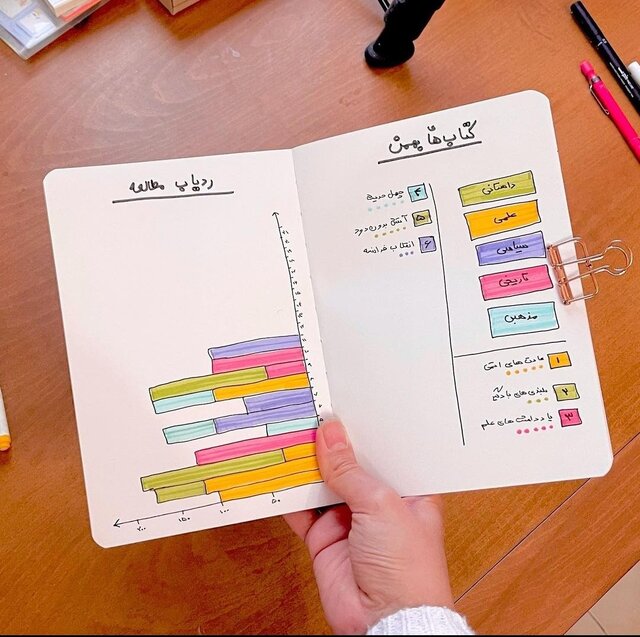 کتاب‌ها بهمن
داستانی
علمی
سیاسی
تاریخی
مذهبی
۱ عادت های اتمی
۲ بلندی های بادگیر
۳ یادداشت های علم
۴ چهل حدیث
۵ آتش بدون دود
۶ انقلاب فرانسه
ردیاب مطالعه
۲۰۰ ۱۵۰ ۱۰۰ ۵۰